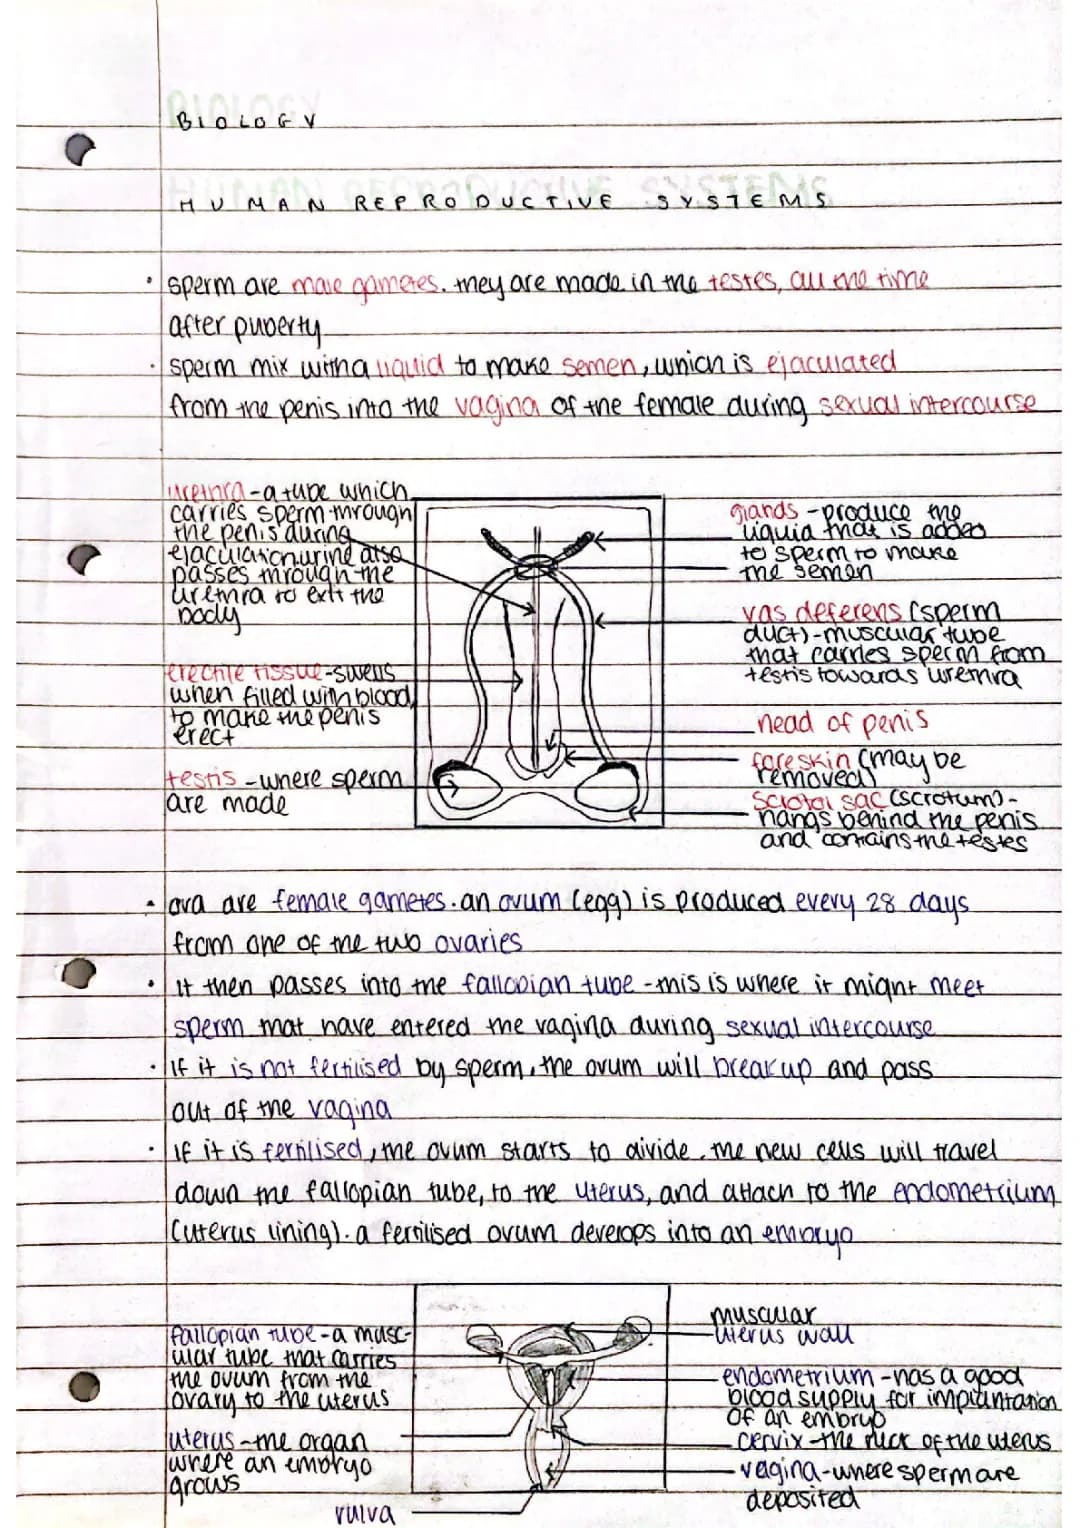 BIOLOGY
HUMAN REPRODUCTIVE SYSTEMS
• sperm are male gametes. they are made in the testes, all the time
after puberty
• sperm mix with a liquid to make semen, which is ejaculated
from the penis into the vagina of the female during sexual intercourse
urethra - a tube which
carries sperm through
the penis during
ejaculation. urine also
passes through the
urethra to exit the
body
erectile tissue - swells
when filled with blood,
to make the penis
erect
testis - where sperm
are made
glands - produce the
liquid that is added
to sperm to make
the semen
vas deferens (sperm
duct) - muscular tube
that carries sperm from
testis towards urethra
head of penis
foreskin (may be
removed)
scrotal sac (scrotum) -
hangs behind the penis
and contains the testes
• ova are female gametes. an ovum (egg) is produced every 28 days
from one of the two ovaries
• it then passes into the fallopian tube - this is where it might meet
sperm that have entered the vagina during sexual intercourse
• if it is not fertilised by sperm, the ovum will break up and pass
out of the vagina
• if it is fertilised, the ovum starts to divide. the new cells will travel
down the fallopian tube, to the uterus, and attach to the endometrium
(uterus lining). a fertilised ovum develops into an embryo
fallopian tube - a musc-
ular tube that carries
the ovum from the
ovary to the uterus
uterus - the organ
where an embryo
grows
vulva
muscular
uterus wall
endometrium - has a good
blood supply for implantation
of an embryo
cervix - the neck of the uterus
vagina - where sperm are
deposited